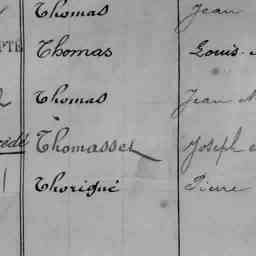 Thomas Jean
Thomas Louis
Thomas Jean
Thomasset Joseph
Thorigné Pierre